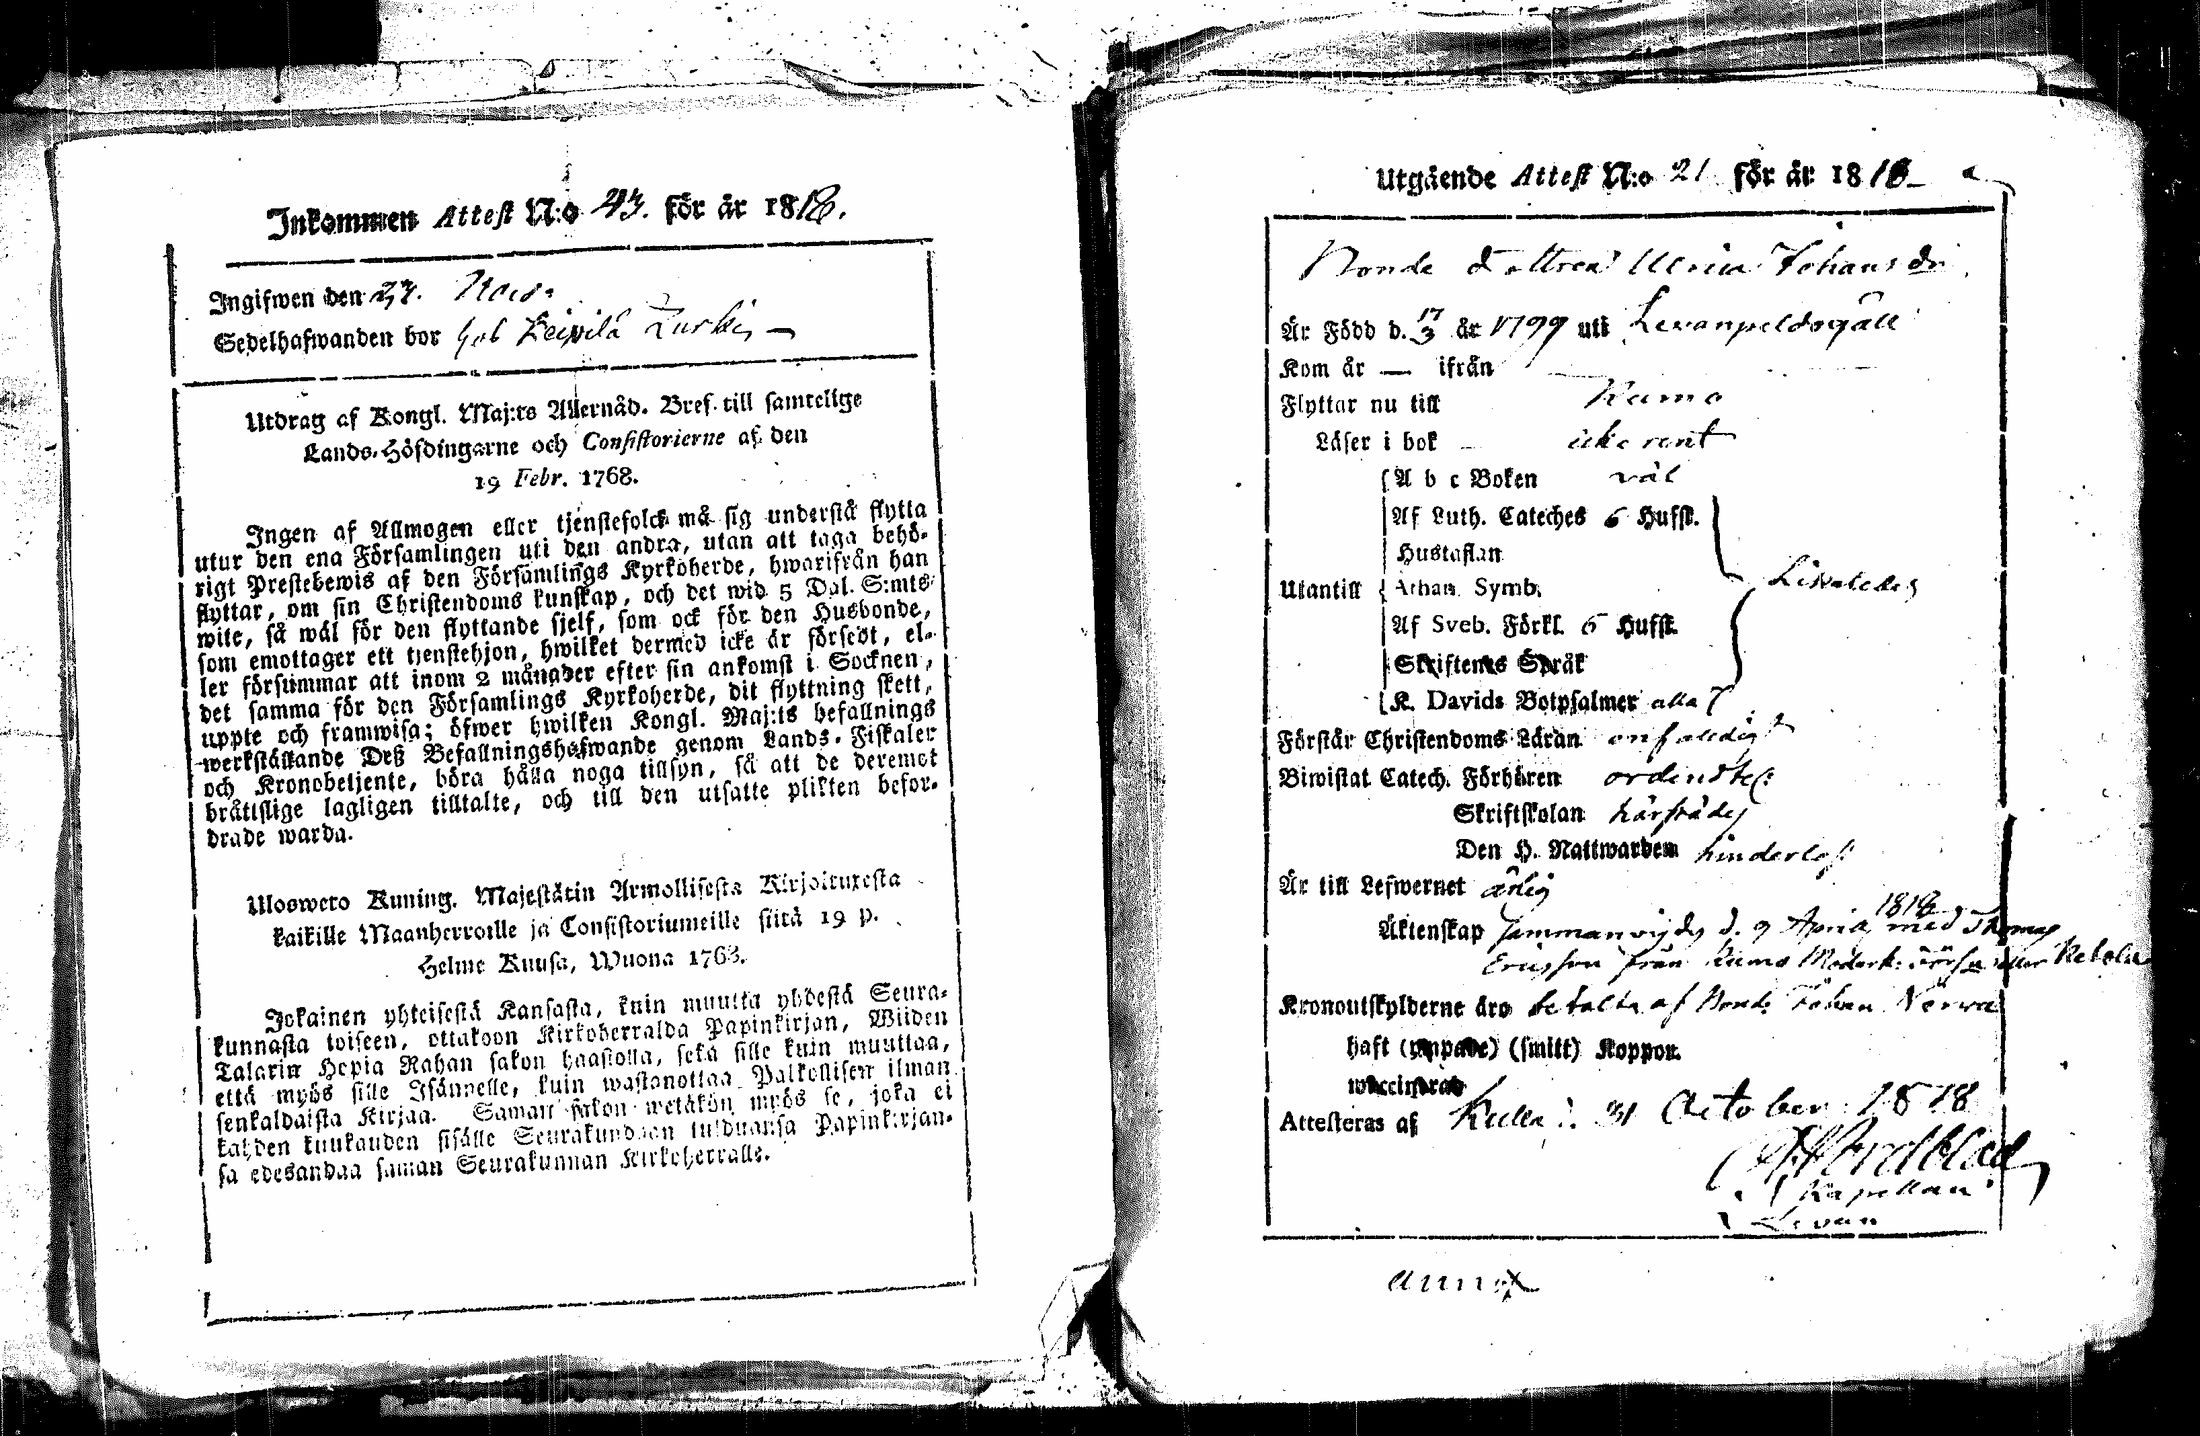 Inkommen Attest N:o 43. för år 1818.
Ingifwen den 23.
Sedelhafwanden bor
Utdrag af Kongl. Maj:ts Allernåd. Bref till samtelige
Lands-Höfdingarne och Consistorierne af den
19 Febr. 1768.
Ingen af Allmogen eller tjenstefolck må sig understå flytta
utur den ena Församlingen uti den andra, utan att taga behö-
rigt Prestebewis af den Församlings Kyrkoherde, hwarifrån han
flyttar, om sin Christendoms kunskap, och det wid 5 Dal. S:mts
wite, så wäl för den flyttande sjelf, som ock för den Husbonde,
som emottager ett tjenstehjon, hwilket dermed icke är försedt, el-
ler försummar att inom 2 månader efter sin ankomst i Socknen,
det samma för den Församlings Kyrkoherde, dit flyttning skett,
uppte och framwisa; öfwer hwilken Kongl. Maj:ts befallnings
werkställande Deß Befallningshafwande genom Lands-Fiskaler
och Kronobetjente, böra hålla noga tillsyn, så att de deremot
bråttslige lagligen tilltalte, och till den utsatte plikten befor-
drade warda.
Ulosweto Kuning. Majestätin Armollisesta Kirjoituxesta
kaikille Maanherroille ja Consistoriumeille siitä 19 p.
Helme Kuusa, Wuona 1768.
Jokainen yhteisestä Kansasta, kuin muutta yhdestä Seura-
kunnasta toiseen, ottakoon Kirkoherralda Papinkirjan, Wiiden
Talarin Hopia Rahan sakon haastolla, sekä sille kuin muuttaa,
että myös sille Isännelle, kuin wastanottaa Palkollisen ilman
senkaldaista Kirjaa. Saman sakon wetäkön myös se, joka ei
kahden kuukauden sisälle Seurakundaan tulduansa Papinkirjan-
sa edesandaa saman Seurakunnan Kirkoherralle.
Utgående Attest N:o 21 för år 1818
Bonde dottren Ulrica Johansdr
Är Född d. 17/3 år 1799 uti Levanpeldsgäll
Kom år — ifrån
Flyttar nu till Kumo
Läser i bok icke rent
A b c Boken väl
Af Luth. Cateches 6 Hufst.
Hustaflan
Utantill Athan. Symb.
Af Sveb. Förkl. 6 Hufst.
Skriftenes Språk
K. Davids Botpsalmer alla 7
Förstår Christendoms Läran enfaldigt
Biwistat Catech. Förhören ordentel:
Skriftskolan härstädes
Den H. Nattwarden hinderlöst
Är till Lefwernet ärlig
Äktenskap Sammanvigdes d. 9 April 1818 med Thomas
Ericsson från Kumo
Kronoutskylderne äro betalta af Bonde Johan
haft (ympade) (smitt) Koppor.
waccinerad
Attesteras af Kulla d. 31 October 1818
Nordblad
Kapellan
annox